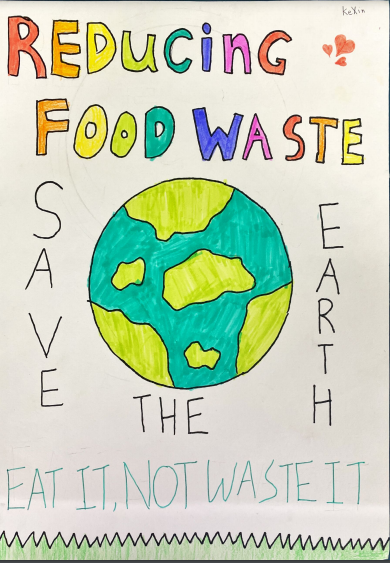 KeXin
REDUCiNG
FOOD WASTE
SAVE
THE
EARTH
EAT IT, NOT WASTE IT